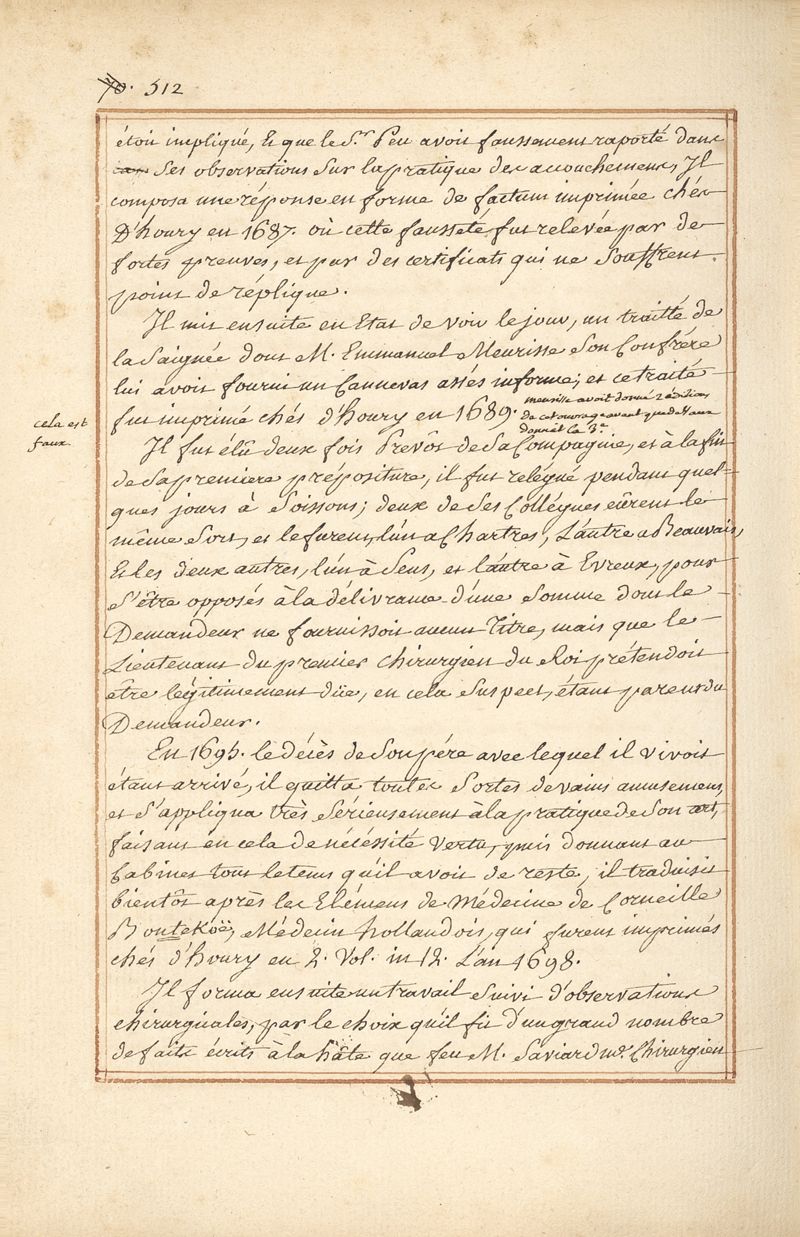 512
étoit impliqué, Et que le S.r Peu avoit faussement raporté dans
Ses observations Sur la pratique des accouchemens, Il
composa une réponse en forme de factum imprimée chés
D'houry en 1687. où cette fausseté fut relevée par de
fortes preuves, et par des certificats qui ne Souffrent
point de réplique.
Il mit ensuite en Etat de voir le jour, un traitté de
la Saignée dont M. Emmanuel Meurisse Son Confrére
lui avoit fourni un Cannevas assés informe; et ce traité
meurisse avoit donné 2 éditions
fut imprimé chés d'houry en 1689.
de cet ouvrage avant que devaux
donnât la 3.e
cela est
faux.
Il fut élû deux fois Prevôt de Sa Compagnie, et à la fin
de Sa premiere prépositure, il fut relégué pendant quel=
ques jours à Soissons; deux de Ses Collégues eûrent le
même Sort, et le furent, l'un a Chartres, L'autre a Beauvais,
Et les deux autres, l'un à Sens, et l'autre à Evreux, pour
S'être opposés à la délivrance d'une Somme dont le
Demandeur ne fournissoit aucun Titre, mais que le
Lieutenant du premier Chirurgien du Roi prétendoit
être légitimement düe, en cela Suspect, étant parent du
Demandeur.
En 1695. le décès de Son pére avec lequel il vivoit
étant arrivé, il quitta toutes Sortes de vains amusemens,
et S'appliqua très Sérieusement à la pratique de Son art,
faisant en cela de nécéssité vertu, puis donnant au
Cabinet tout le tems qu'il avoit de reste, il traduisit
bientôt après les Elémens de Médecine de Corneille
Bontekoë, Médecin hollandois, qui furent imprimés
chés d'houry en 2. Vol. in 12. L'an 1698.
Il forma ensuite un travail Suivi d'observations
chirurgicales, par le choix qu'il fit d'un grand nombre
de faits écrits à la hâte que feu M. Saviard m.e Chirurgien